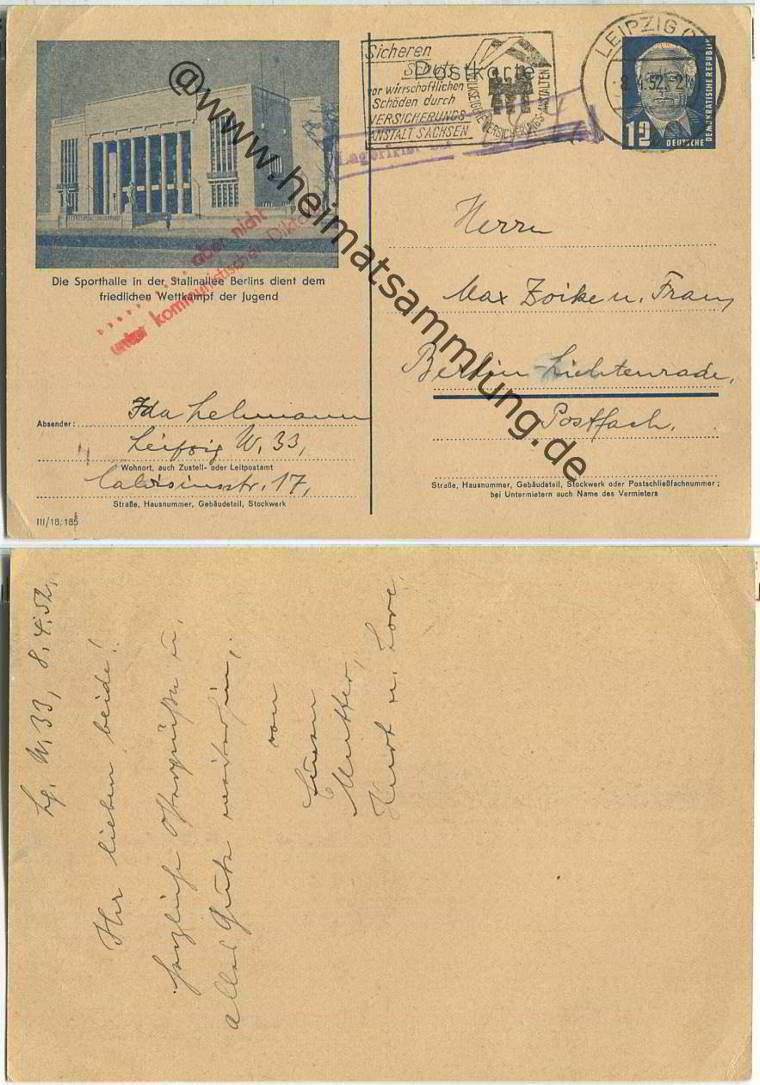 Sicheren
Schutz
vor wirtschaftlichen
Schäden durch
VERSICHERUNGS-
ANSTALT SACHSEN
Postkarte
LEIPZIG
8.4.52
12
DEUTSCHE
DEMOKRATISCHE REPUBLIK
Lagerfrist
@www.heimatsammlung.de
aber nicht
unter kommunistischer
Die Sporthalle in der Stalinallee Berlins dient dem
friedlichen Wettkampf der Jugend
Herrn
Max u. Frau
Berlin-Lichtenrade,
Postfach.
Straße, Hausnummer, Gebäudeteil, Stockwerk oder Postschließfachnummer;
bei Untermietern auch Name des Vermieters
Absender: Ida Lehmann
Leipzig W. 33,
Wohnort, auch Zustell- oder Leitpostamt
Calvisiusstr. 17,
Straße, Hausnummer, Gebäudeteil, Stockwerk
III/18/185
Lg. W. 33, 8.4.52.
Ihr lieben beide!
herzliche Ostergrüße u.
alles Gute weiterhin,
von
Eurer
Mutter,
Kurt u. Lore